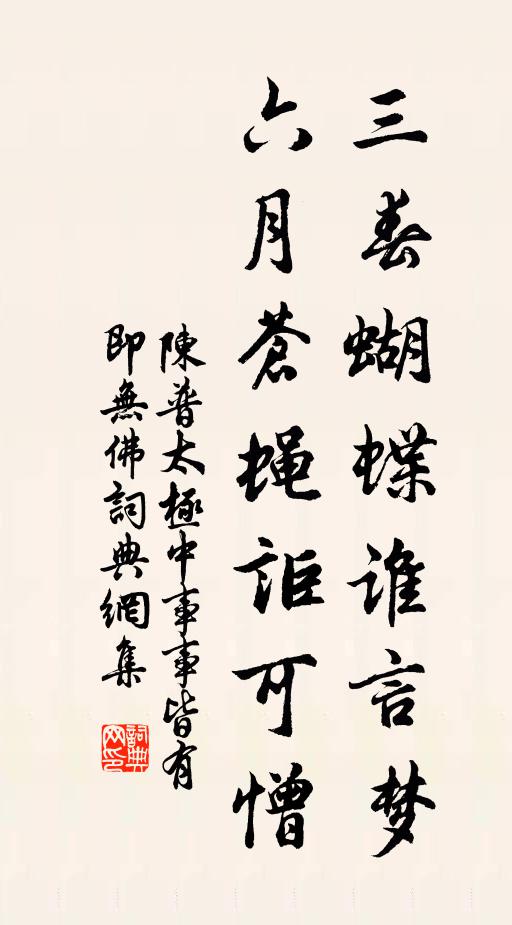 三春蝴蝶谁言梦
六月苍蝇詎可憎
陳普太極中事事皆有
即無佛詞典網集
詞典网印